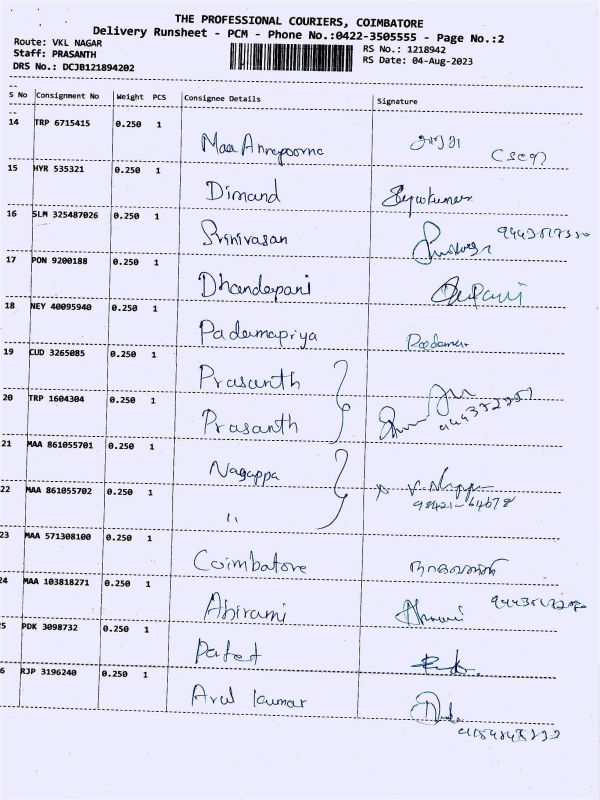 THE PROFESSIONAL COURIERS, COIMBATORE
Delivery Runsheet - PCM - Phone No.:0422-3505555 - Page No.:2
Route: VKL NAGAR
Staff: PRASANTH
DRS No.: DCJB121894202
RS No.: 1218942
RS Date: 04-Aug-2023
S No Consignment No Weight PCS Consignee Details Signature
14 TRP 6715415 0.250 1 Maa Annapoorna
15 HYR 535321 0.250 1 Dimand
16 SLM 325487026 0.250 1 Srinivasan
17 PON 9200188 0.250 1 Dhandapani
18 NEY 40095940 0.250 1 Padamapriya
19 CUD 3265085 0.250 1 Prasanth
20 TRP 1604304 0.250 1 Prasanth
21 MAA 861055701 0.250 1 Nagappa
22 MAA 861055702 0.250 1 "
98421-64678
23 MAA 571308100 0.250 1 Coimbatore
24 MAA 103818271 0.250 1 Abirami
5 PDK 3098732 0.250 1
6 RJP 3196240 0.250 1 Arul kumar